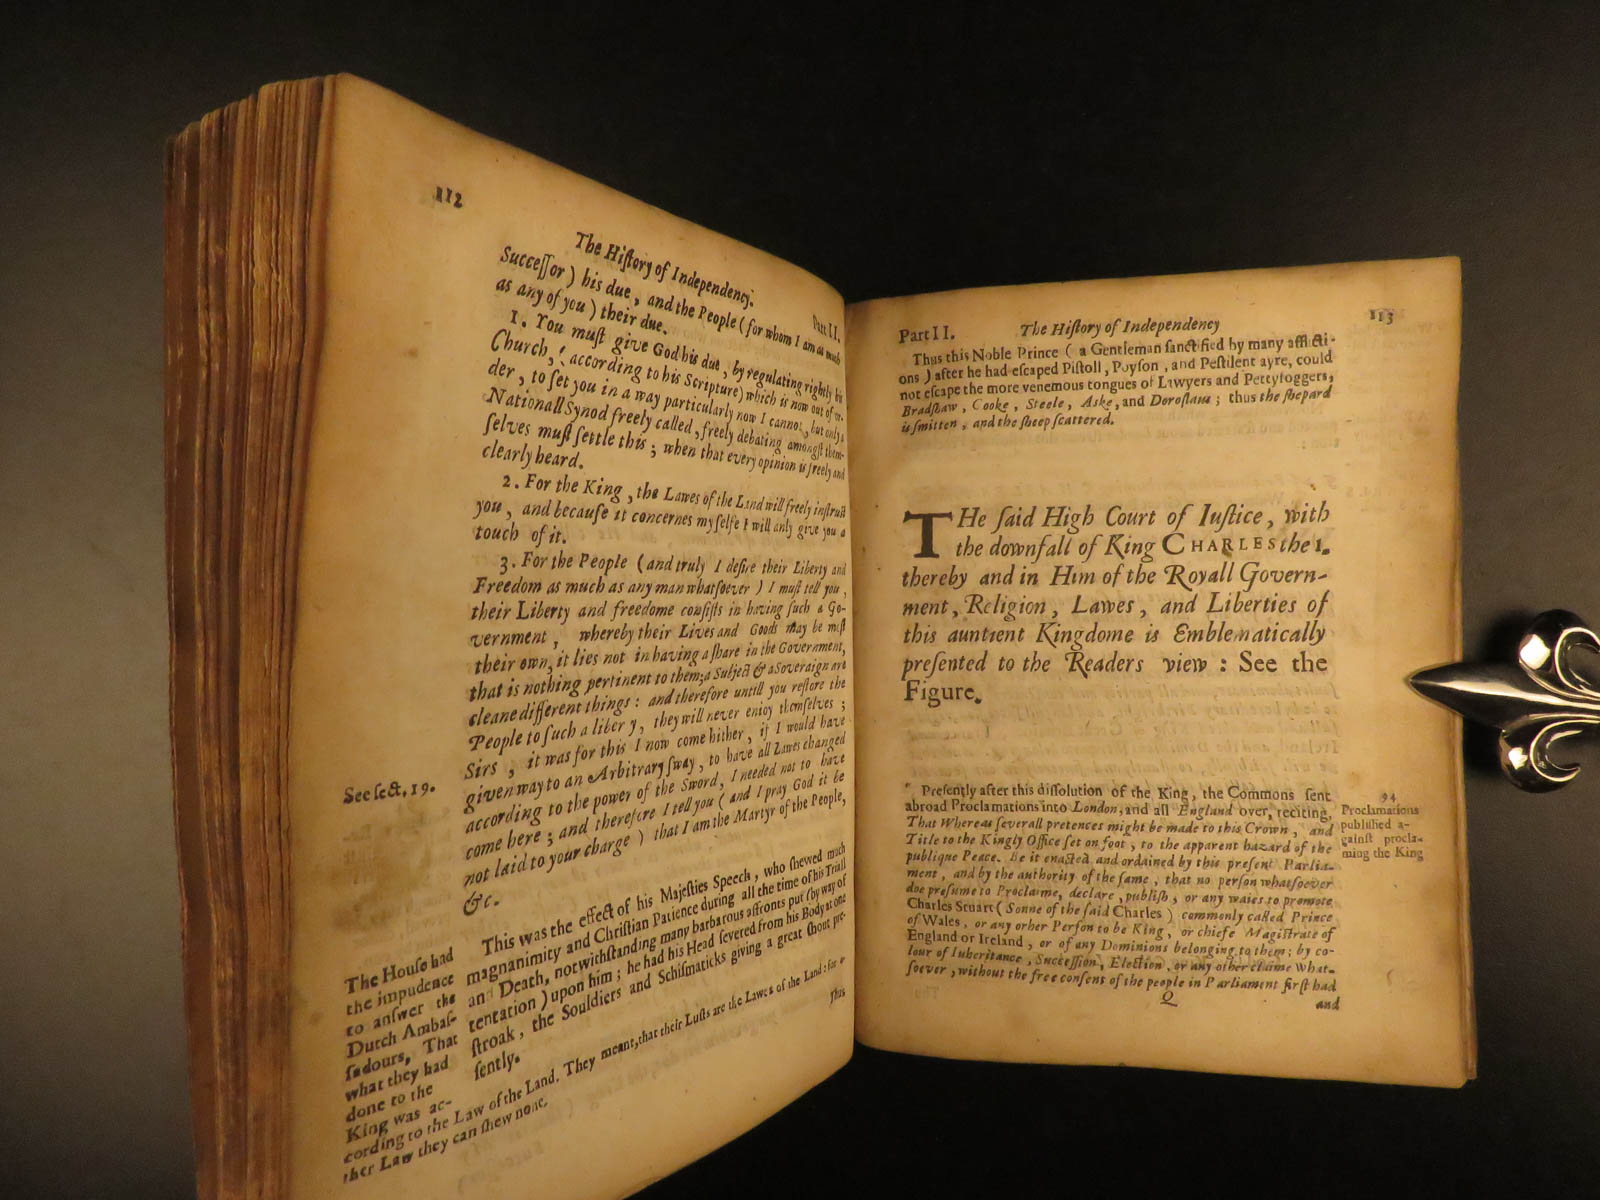 112
The Hiſtory of Independency.
Part II.
Succeſſor) his due, and the People (for whom I am as much
as any of you) their due.
1. You muſt give God his due, by regulating rightly his
Church, (according to his Scripture) which is now out of or-
der, to ſet you in a way particularly now I cannot, but only a
Nationall Synod freely called, freely debating amongſt them-
ſelves muſt ſettle this; when that every opinion is freely and
clearly heard.
2. For the King, the Lawes of the Land will freely inſtruct
you, and becauſe it concernes my ſelfe I will only give you a
touch of it.
3. For the People (and truly I deſire their Liberty and
Freedom as much as any man whatſoever) I muſt tell you,
their Liberty and freedome conſiſts in having ſuch a Go-
vernment, whereby their Lives and Goods may be moſt
their own, it lies not in having a ſhare in the Government,
that is nothing pertinent to them; a Subject & a Soveraign are
cleane different things: and therefore untill you reſtore the
People to ſuch a liber y, they will never enjoy themſelves;
Sirs, it was for this I now come hither, if I would have
given way to an Arbitrary ſway, to have all Lawes changed
according to the power of the Sword, I needed not to have
come here; and therefore I tell you (and I pray God it be
not laid to your charge) that I am the Martyr of the People,
&c.
See ſect. 19.
This was the effect of his Majeſties Speech, who ſhewed much
magnanimity and Chriſtian Patience during all the time of his Triall
and Death, notwithſtanding many barbarous affronts put (by way of
tentation) upon him; he had his Head ſevered from his Body at one
ſtroak, the Souldiers and Schiſmaticks giving a great ſhout pre-
ſently.
Thus
The Houſe had
the impudence
to anſwer the
Dutch Ambaſ-
ſadours, That
what they had
done to the
King was ac-
cording to the Law of the Land. They meant, that their Luſts are the Lawes of the Land: for
ther Law they can ſhew none.
Part II. The Hiſtory of Independency 113
Thus this Noble Prince (a Gentleman ſanctified by many afflicti-
ons) after he had eſcaped Piſtoll, Poyſon, and Peſtilent ayre, could
not eſcape the more venemous tongues of Lawyers and Pettyfoggers,
Bradſhaw, Cooke, Steele, Aske, and Doroſlaus; thus the ſhepard
is ſmitten, and the ſheep ſcattered.
THe ſaid High Court of Iuſtice, with
the downfall of King CHARLES the 1.
thereby and in Him of the Royall Govern-
ment, Religion, Lawes, and Liberties of
this auntient Kingdome is Emblematically
preſented to the Readers view: See the
Figure.
Preſently after this diſſolution of the King, the Commons ſent
abroad Proclamations into London, and all England over, reciting,
That Whereas ſeverall pretences might be made to this Crown, and
Title to the Kingly Office ſet on foot, to the apparent hazard of the
publique Peace. Be it enacted and ordained by this preſent Parlia-
ment, and by the authority of the ſame, that no perſon whatſoever
doe preſume to Proclaime, declare, publiſh, or any waies to promote
Charles Stuart (Sonne of the ſaid Charles) commonly called Prince
of Wales, or any other Perſon to be King, or chiefe Magiſtrate of
England or Ireland, or of any Dominions belonging to them; by co-
lour of Inheritance, Succeſſion, Election, or any other claime What-
ſoever, without the free conſent of the people in Parliament firſt had
Q and
94
Proclamations
publiſhed a-
gainſt procla-
ming the King